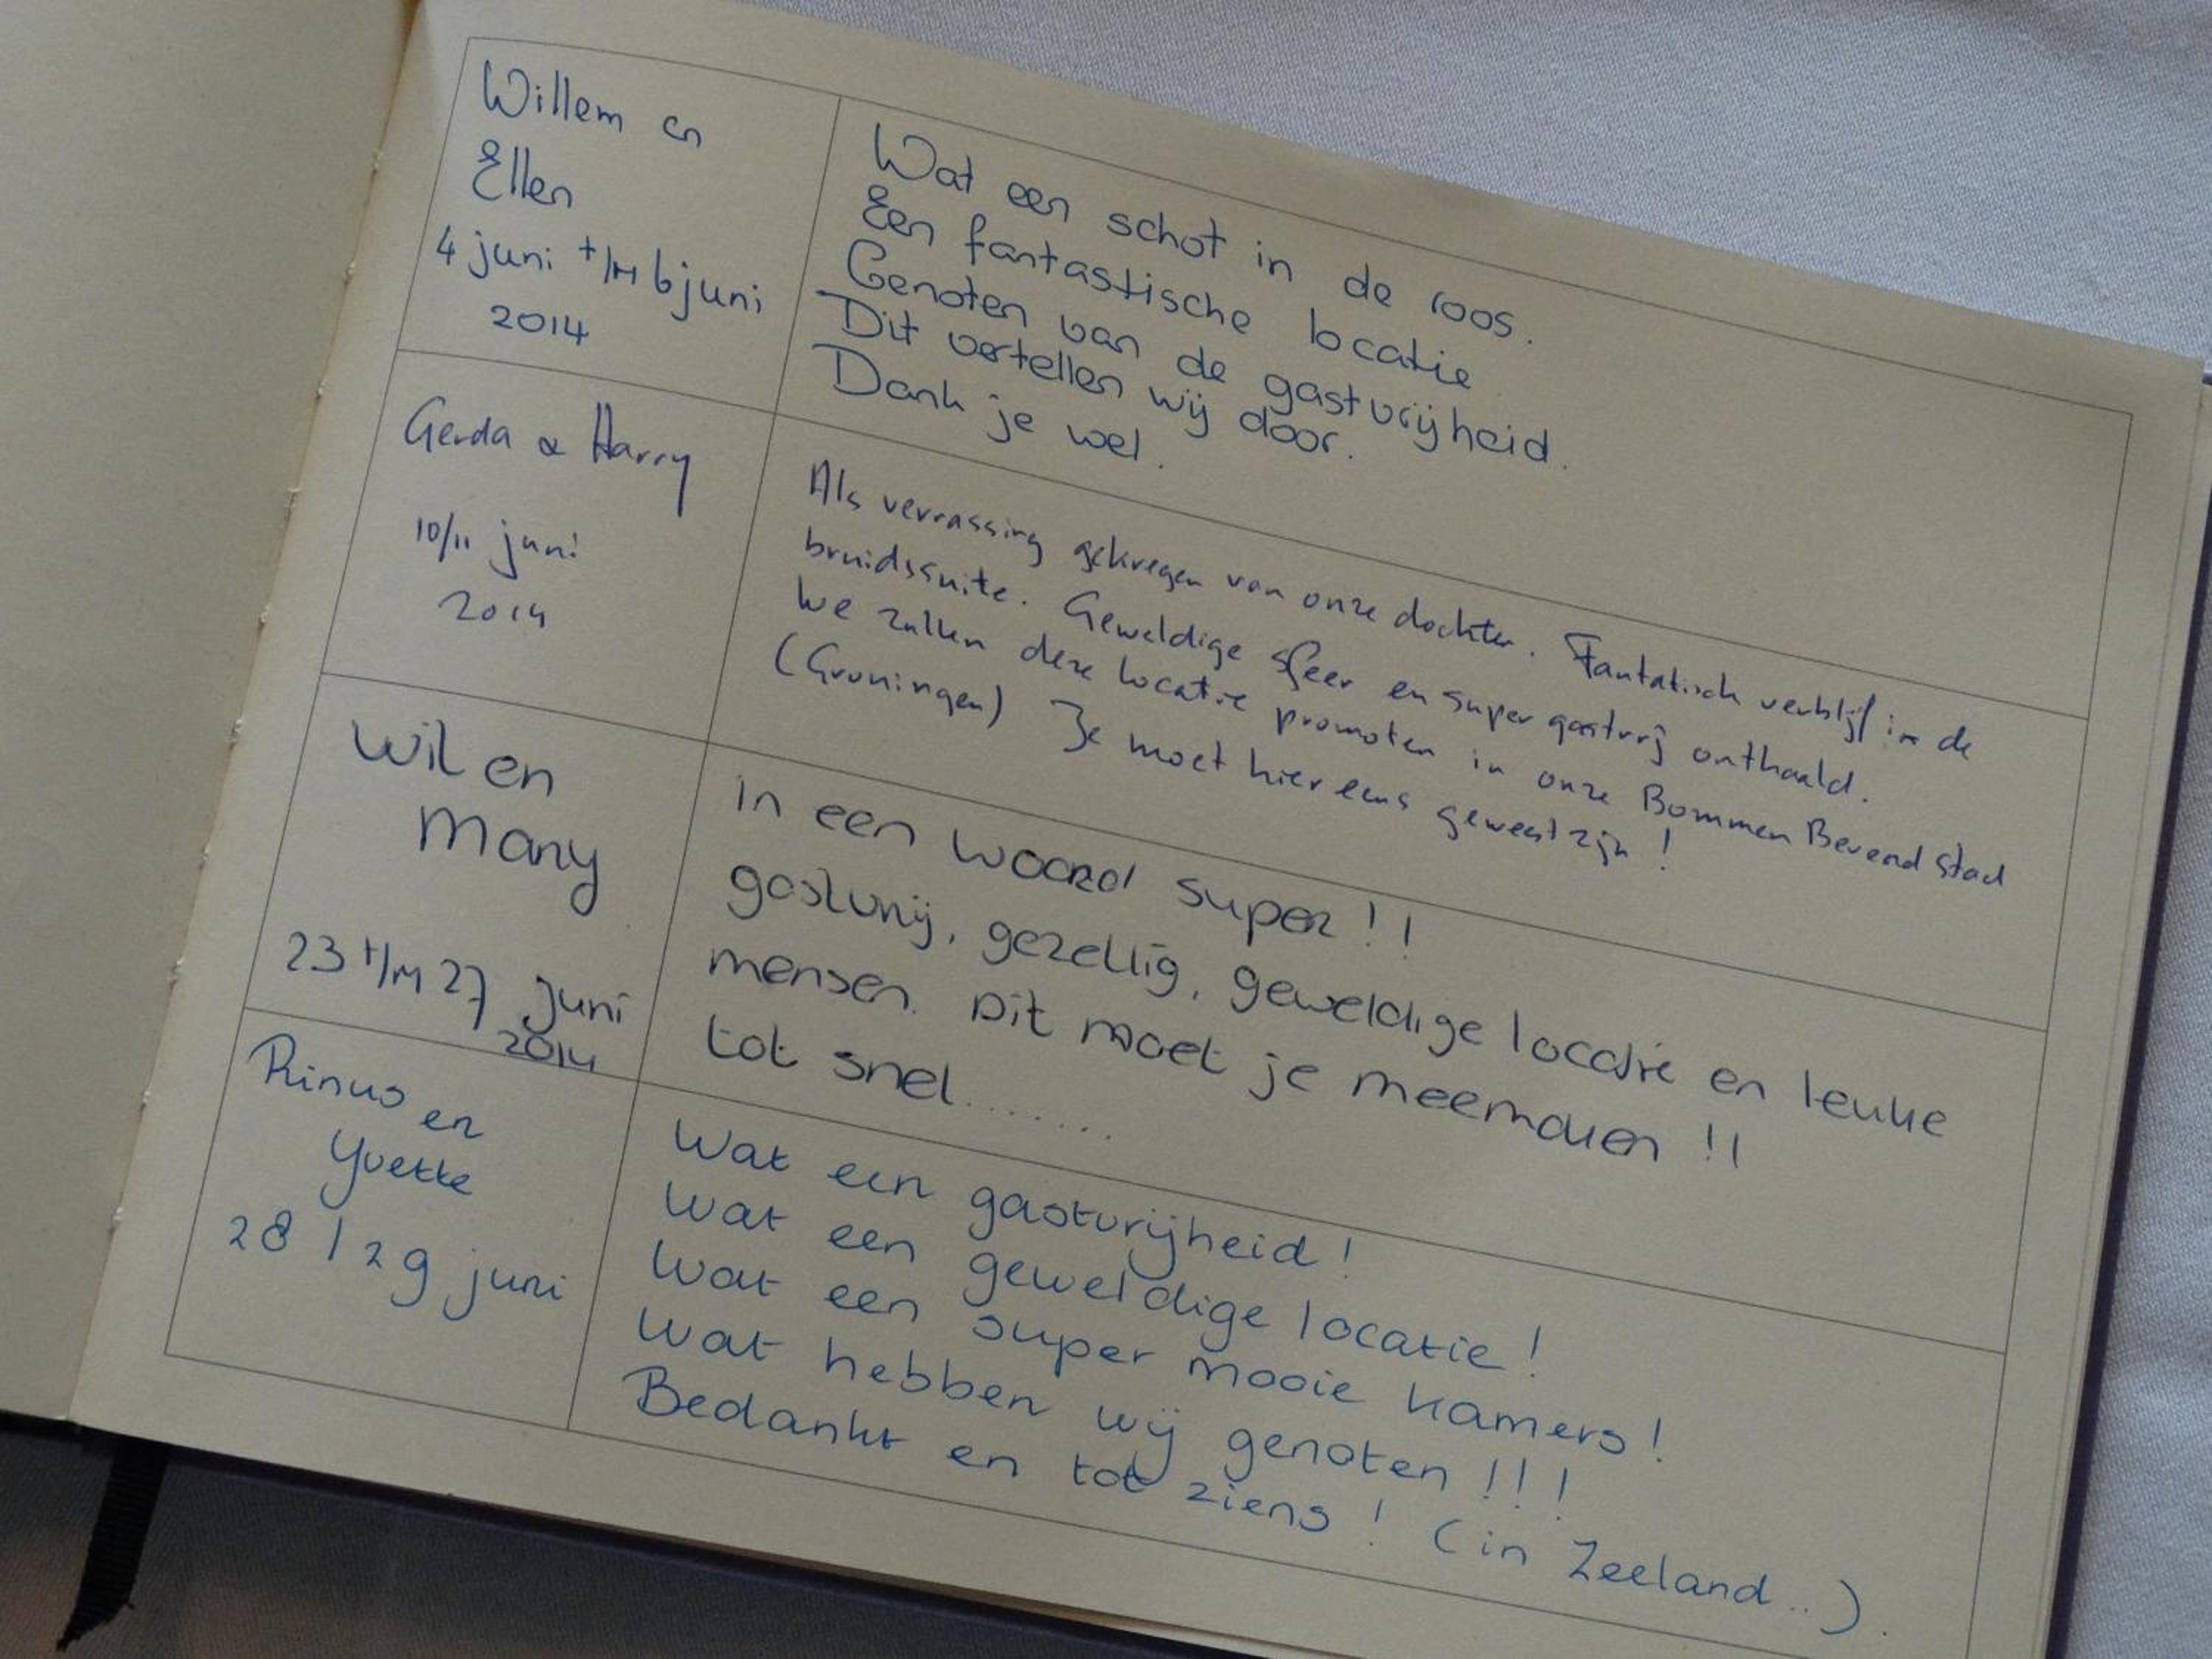 Willem en
Ellen
4 juni t/m 6 juni
2014
Wat een schot in de roos.
Een fantastische locatie
Genoten van de gastvrijheid.
Dit vertellen wij door.
Dank je wel.
Gerda & Harry
10/11 juni
2014
Als verrassing gekregen van onze dochter. Fantatisch verblijf in de
bruidssuite. Geweldige sfeer en super gastvrij onthaald.
We zullen deze locatie promoten in onze Bommen Berend stad
(Groningen) Je moet hier eens geweest zijn!
Wil en
Many
23 t/m 27 juni
2014
in een woord super!!
gastvrij, gezellig, geweldige locatie en leuke
mensen. Dit moet je meemaken!!
tot snel.......
Rinus en
Yvette
28 / 29 juni
Wat een gastvrijheid!
Wat een geweldige locatie!
Wat een super mooie kamers!
Wat hebben wij genoten!!!
Bedankt en tot ziens! (in Zeeland..).